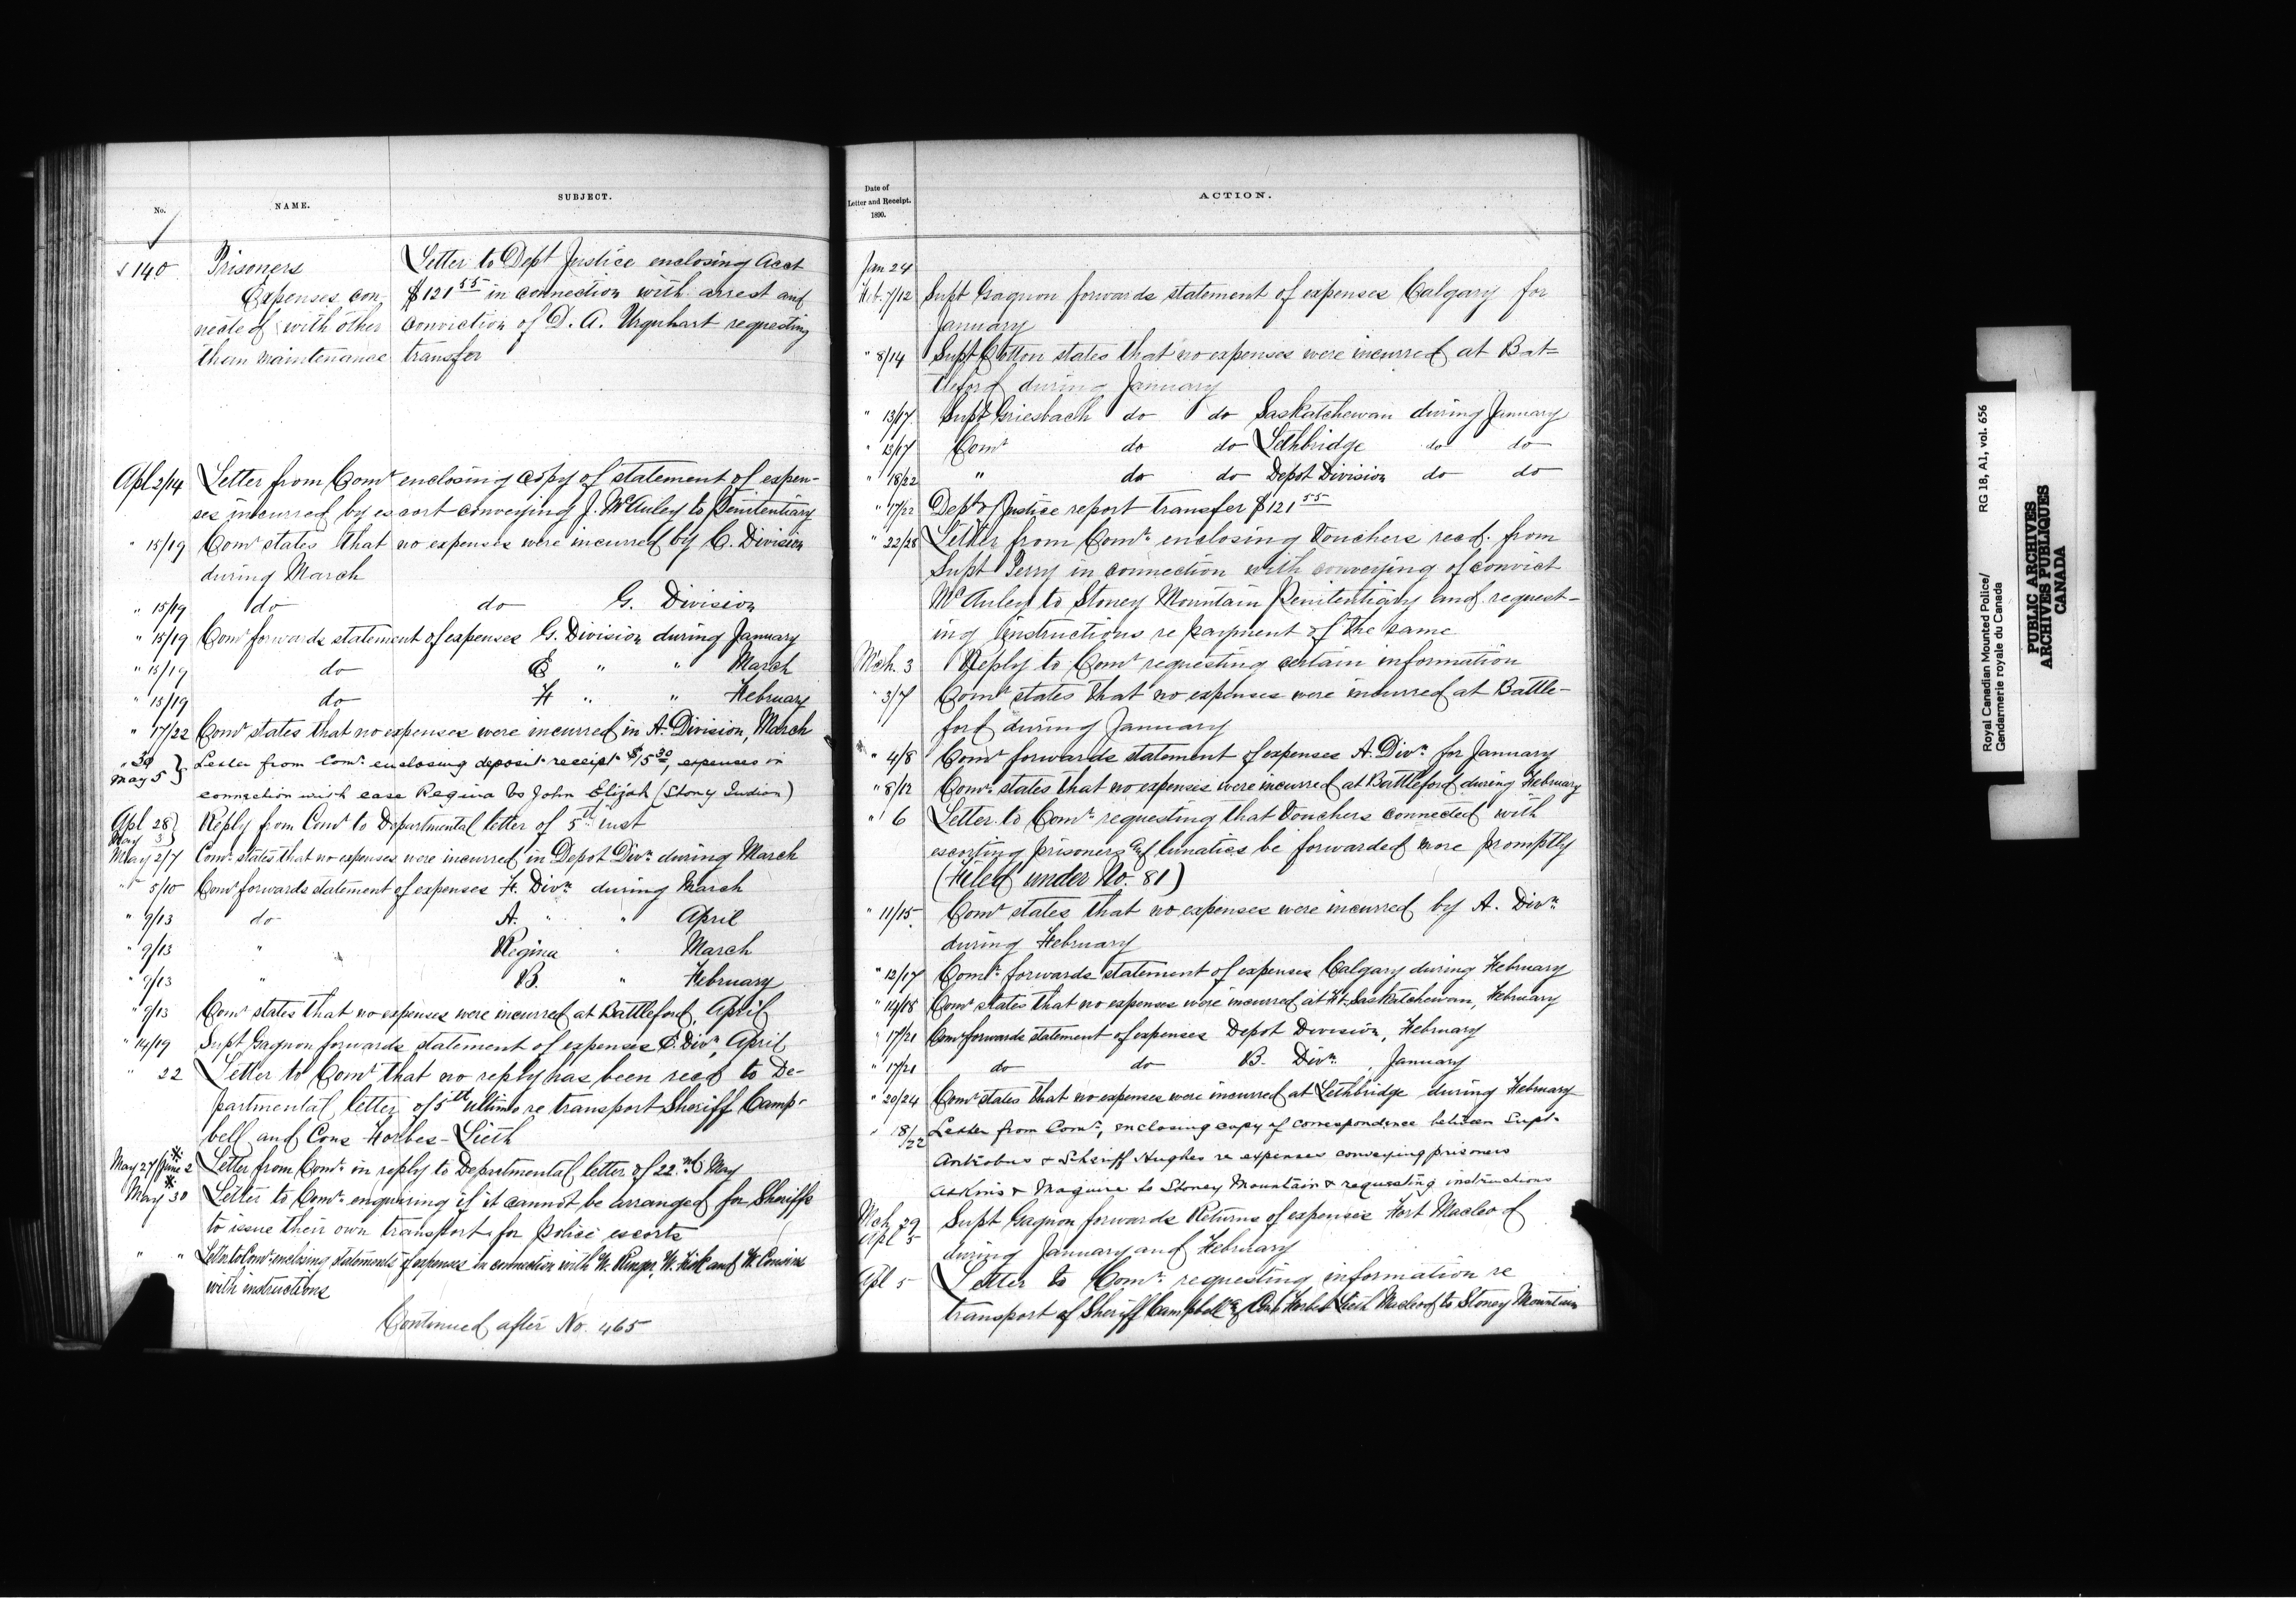 No.
NAME.
SUBJECT.
140
Prisoners
Expenses con-
nected with other
than maintenance
Letter to Dept Justice enclosing Acct
$121 55 in connection with arrest and
conviction of D. A. Urquhart requesting
transfer
Apl 2/14 Letter from Comr enclosing copy of statement of expen-
ses incurred by escort conveying J. McAuley to Penitentiary
" 15/19 Comr states that no expenses were incurred by C. Division
during March
" 15/19 do do G. Division
" 15/19 Comr forwards statement of expenses G. Division during January
" 15/19 do E " " March
" 15/19 do F " " February
" 17/22 Comr states that no expenses were incurred in A. Division, March
" 30 May 5 } Letter from Comr. enclosing deposit receipt $15 30, expenses in
connection with case Regina vs John Elijah (Stony Indian)
Apl 28 May 3 } Reply from Comr to Departmental letter of 5th inst
May 2/7 Comr. states that no expenses were incurred in Depot Divn during March
" 5/10 Comr forwards statement of expenses F. Divn during March
" 9/13 do A. " " April
" 9/13 " " Regina " March
" 9/13 " B. " February
" 9/13 Comr states that no expenses were incurred at Battleford, April
" 14/19 Supt Gagnon forwards statement of expenses E. Divn, April
" 22 Letter to Comr that no reply has been recd to De-
partmental letter of 5th ultimo re transport Sheriff Camp-
bell and Cons Forbes-Lieth
May 27/June 2 * Letter from Comr. in reply to Departmental letter of 22nd May
May 30 * Letter to Comr. enquiring if it cannot be arranged for Sheriffs
to issue their own transport for Police escorts
" " Letter to Comr enclosing statements of expenses in connection with W. and W. Cousins
with instructions
Continued after No. 465
Date of
Letter and Receipt.
1890.
ACTION.
Jan 24
Feb. 7/12 Supt Gagnon forwards statement of expenses Calgary for
January
" 8/14 Supt Cotton states that no expenses were incurred at Bat-
tleford during January
" 13/17 Supt Griesbach do do Saskatchewan during January
" 13/17 Comr do do Lethbridge do do
" 18/22 " do do Depot Division do do
" 17/22 Dept of Justice report transfer $121 55
" 22/28 Letter from Comr. enclosing Vouchers recd. from
Supt Perry in connection with conveying of convict
McAuley to Stoney Mountain Penitentiary and request-
ing instructions re payment of the same
Mch. 3 Reply to Comr requesting certain information
" 3/7 Comr states that no expenses were incurred at Battle-
ford during January
" 4/8 Comr forwards statement of expenses A. Divn. for January
" 8/12 Comr. states that no expenses were incurred at Battleford during February
" 6 Letter to Comr. requesting that Vouchers connected with
escorting prisoners and lunatics be forwarded more promptly
(Filed under No. 81)
" 11/15 Comr states that no expenses were incurred by A. Divn
during February
" 12/17 Comr. forwards statement of expenses Calgary during February
" 14/18 Comr states that no expenses were incurred at Ft. Saskatchewan, February
" 17/21 Comr forwards statement of expenses Depot Division, February
" 17/21 do do B. Divn. January
" 20/24 Comr states that no expenses were incurred at Lethbridge during February
" 18/22 Letter from Comr, enclosing copy of correspondence between Supt.
Antrobus & Sheriff Hughes re expenses conveying prisoners
Askins & Maguire to Stoney Mountain & requesting instructions
Mch 29 Apl 5 Supt Gagnon forwards Returns of expenses Fort Macleod
during January and February
Apl 5 Letter to Comr. requesting information re
transport of Sheriff Campbell & Cons Forbes Lieth Macleod to Stoney Mountain
Royal Canadian Mounted Police/
Gendarmerie royale du Canada
RG 18, A1, vol. 656
PUBLIC ARCHIVES
ARCHIVES PUBLIQUES
CANADA